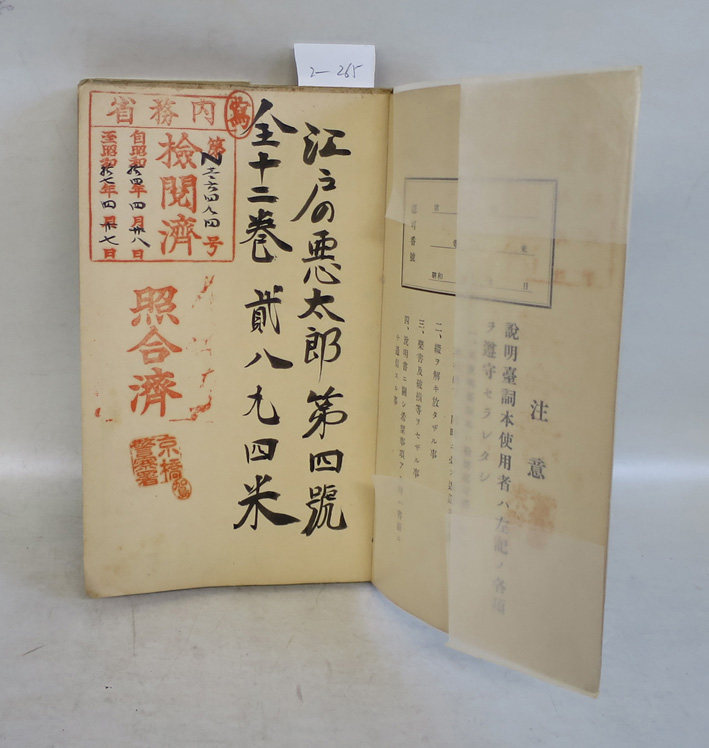 2-265
注意
説明臺詞本使用者ハ左記ノ各項
ヲ遵守セラレタシ
二、綴ヲ解キ放タザル事
三、樂書及破損等ヲセザル事
認可番號
昭和
日
江戸の悪太郎 第四號
全十二巻 貳八九四米
内務省
檢閲濟
第N三六四九四号
自昭和拾四年四月廿八日
至昭和拾七年四月廿七日
照合濟
京橋
警察署